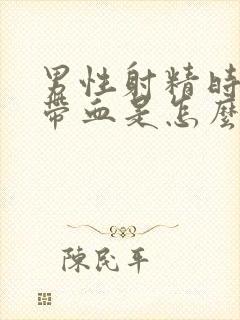 男性射精時
帶血是怎麼
陳民平